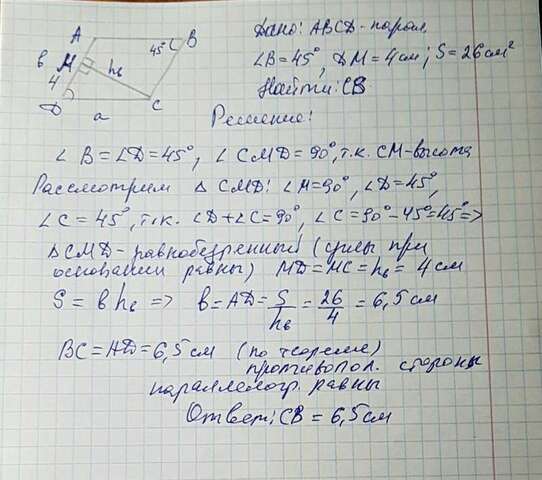 A 45° B
Дано: ABCD - парал.
в М hв
∠B = 45°, DM = 4 см; S = 26 см²
4
Найти: CB
D C
a
Решение:
∠B = ∠D = 45°, ∠CMD = 90°, т.к. CM - высота
Рассмотрим △CMD: ∠M = 90°, ∠D = 45°,
∠C = 45°, т.к. ∠D + ∠C = 90°, ∠C = 90° - 45° = 45° =>
△CMD - равнобедренный (углы при
основании равны) MD = MC = hв = 4 см
S = в hв => в = AD = S/hв = 26/4 = 6,5 см
BC = AD = 6,5 см (по теореме)
противопол. стороны
параллелогр. равны
Ответ: CB = 6,5 см